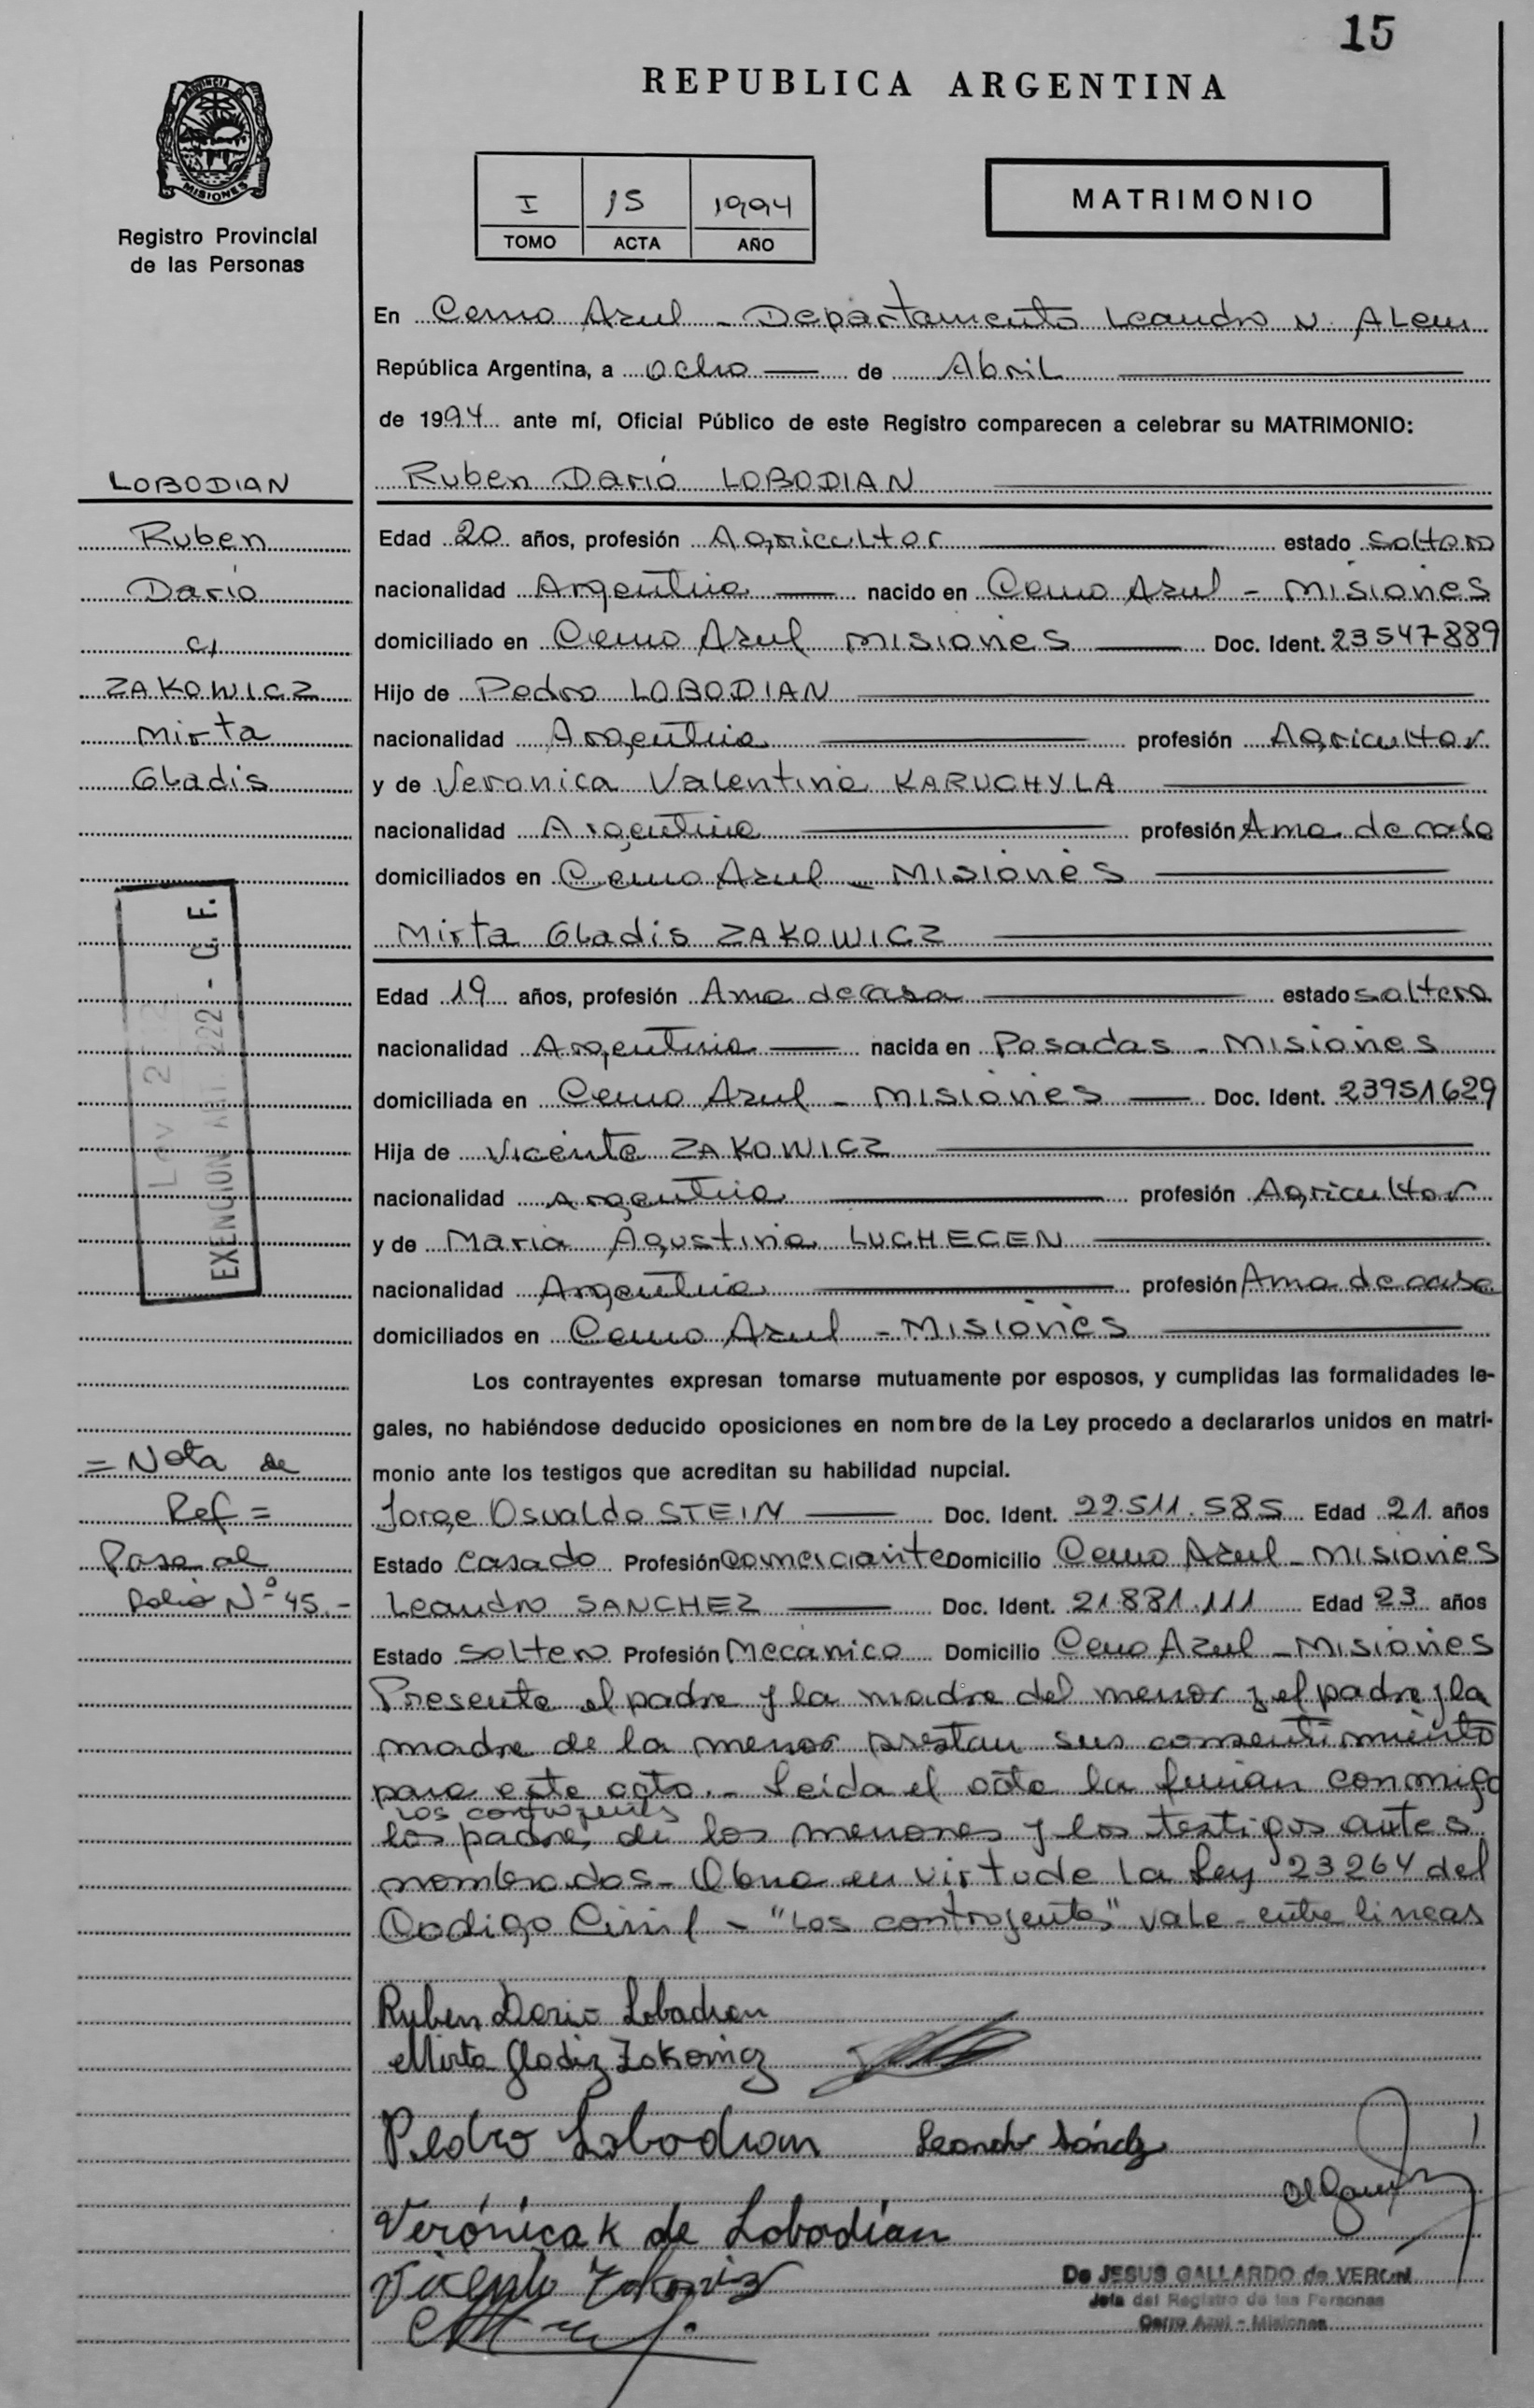 15
REPUBLICA ARGENTINA
PROVINCIA DE MISIONES
Registro Provincial
de las Personas
I 15 1994
TOMO ACTA AÑO
MATRIMONIO
En Cerro Azul - Departamento Leandro N. ALem
República Argentina, a ocho de Abril
de 1994 ante mí, Oficial Público de este Registro comparecen a celebrar su MATRIMONIO:
LOBODIAN
Ruben Dario LOBODIAN
Ruben
Edad 20 años, profesión Agricultor estado soltero
Dario
nacionalidad Argentina nacido en Cerro Azul - Misiones
c/
domiciliado en Cerro Azul Misiones Doc. Ident. 23547889
ZAKOWICZ
Hijo de Pedro LOBODIAN
Mirta
nacionalidad Argentina profesión Agricultor
Gladis
y de Veronica Valentina KARUCHYLA
nacionalidad Argentina profesión Ama de casa
domiciliados en Cerro Azul - Misiones
Mirta Gladis ZAKOWICZ
Edad 19 años, profesión Ama de casa estado soltera
nacionalidad Argentina nacida en Posadas - Misiones
domiciliada en Cerro Azul - Misiones Doc. Ident. 23951629
Hija de Vicente ZAKOWICZ
nacionalidad Argentina profesión Agricultor
y de Maria Agustina LUCHECEN
nacionalidad Argentina profesión Ama de casa
domiciliados en Cerro Azul - Misiones
EXENCION ART 222 - C. F.
Los contrayentes expresan tomarse mutuamente por esposos, y cumplidas las formalidades le-
gales, no habiéndose deducido oposiciones en nombre de la Ley procedo a declararlos unidos en matri-
monio ante los testigos que acreditan su habilidad nupcial.
= Nota de
Ref =
Pase al
Folio Nº 45.-
Jorge Osvaldo STEIN Doc. Ident. 22.511.585 Edad 21 años
Estado casado Profesión comerciante Domicilio Cerro Azul - Misiones
Leandro SANCHEZ Doc. Ident. 21.881.111 Edad 23 años
Estado soltero Profesión Mecanico Domicilio Cerro Azul - Misiones
Presente el padre y la madre del menor y el padre y la
madre de la menor prestan sus consentimiento
para este acto.- Leida el acta la firman conmigo
los contrayentes
los padres de los menores y los testigos antes
nombrados - Obra en virtud de la Ley 23264 del
Codigo Civil - "Los contrayentes" vale entre lineas
Ruben Dario Lobodian
Mirta Gladiz Zakowicz
Pedro Lobodian Leandro Sánchez
Verónica K de Lobodian
Vicente Zakowiz
De JESUS GALLARDO de VERON
Jefa del Registro de las Personas
Cerro Azul - Misiones